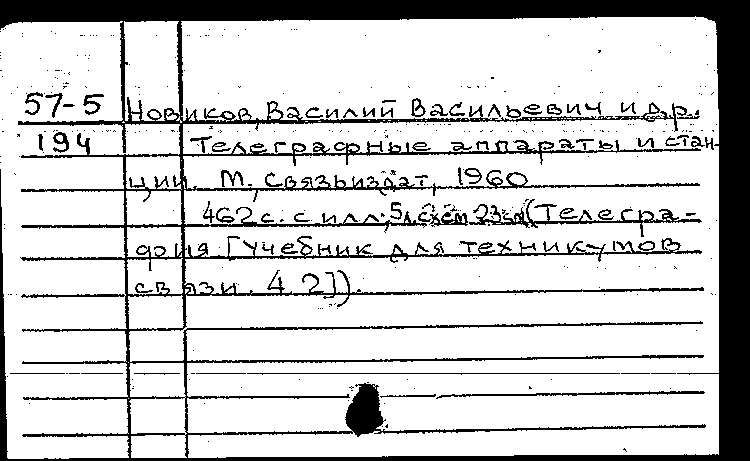 57-5 Новиков, Василий Васильевич и др.
194 Телеграфные аппараты и стан-
ции. М., Связьиздат, 1960
462 с. с илл.; 5 л. схем 23 см (Телегра-
фия [Учебник для техникумов
связи. Ч. 2]).